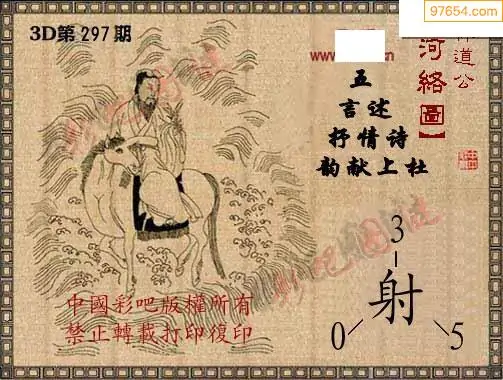 97654.com
3D第297期
www.
道公
河络圖】
五
言述
抒情诗
韵献上杜
3
射
0
5
中國彩吧版權所有
禁止轉載打印復印